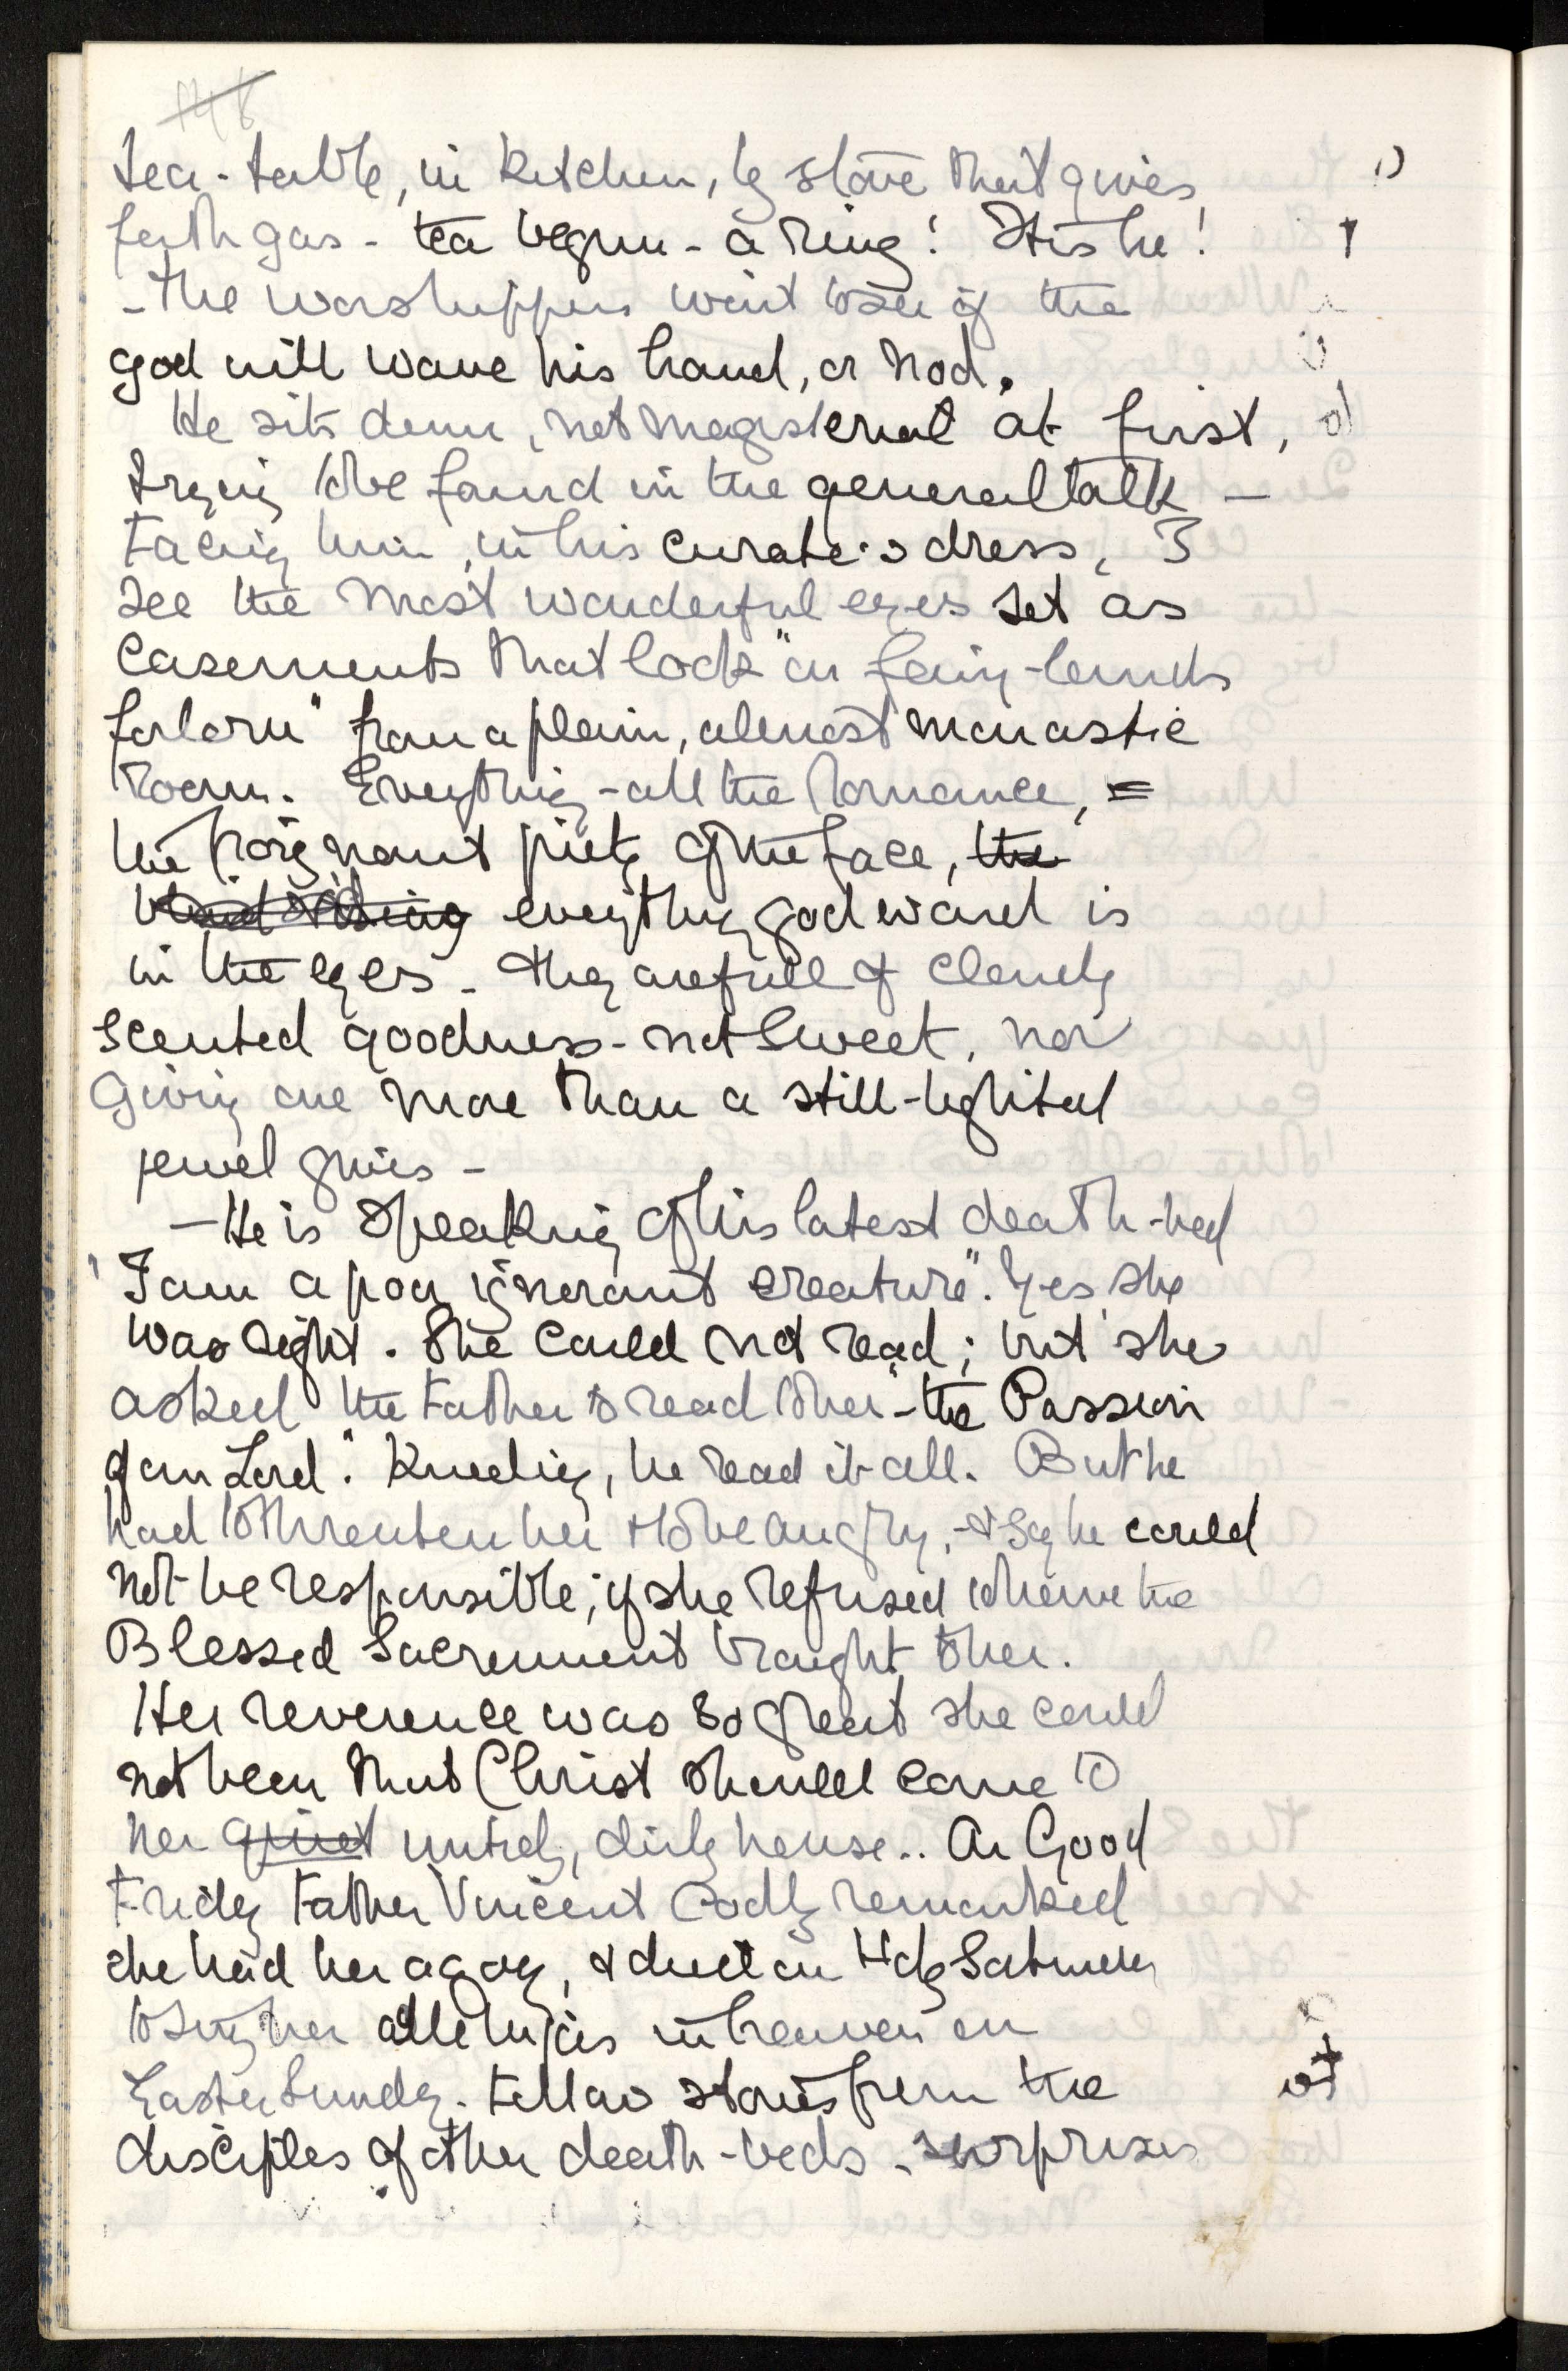 tea-table, in kitchen, by stove that gives
forth gas - tea begun - a ring! It is he!
- the worshippers wait to see if the
god will wave his hand, or nod.
He sits down, not magisterial at first,
trying to be found in the general talk -
Facing him, in his curate's dress, I
see the most wonderful eyes set as
casements that look "on fairy-lands
forlorn" from a plain, almost monastic
room. Everything - all the romance, =
the poignant piety of the face, the
everything godward is
in the eyes - they are full of
scented goodness - not sweet, nor
giving one more than a still-lighted
jewel gives -
- He is speaking of his latest death-bed
"I am a poor ignorant creature". Yes, she
was right. She could not read; but she
asked the Father to read to her "the Passion
of our Lord". Kneeling, he read it all. But he
had to threaten her & to be angry, - & say he could
not be responsible, if she refused to have the
Blessed Sacrament brought to her.
Her reverence was so great she could
not bear that Christ should come to
her quiet untidy, dirty house.. On Good
Friday Father Vincent oddly remarked
she had her agony, & died on Holy Saturday
to sing her alleluias in heaven on
Easter Sunday. Follow stories from the
disciples of other death-beds - surprises